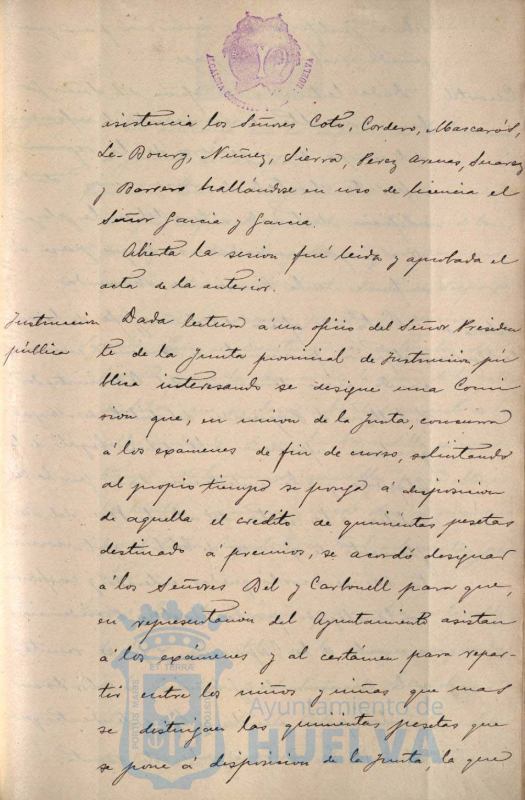 ALCALDIA CONST HUELVA
asistencia los Señores Coto, Cordero, Mascarós,
Le-Bourg, Nuñez, Sierra, Perez Arenas, Suarez
y Barrero hallándose en uso de licencia el
Señor Garcia y Garcia.
Abierta la sesion fué leida y aprobada el
acta de la anterior.
Instruccion
pública
Dada lectura á un oficio del Señor Presiden
te de la Junta provincial de Instruccion pú
blica interesando se designe una Comi
sion que, en union de la Junta, concurra
á los exámenes de fin de curso, solicitando
al propio tiempo se ponga á disposicion
de aquella el crédito de quinientas pesetas
destinado á premios, se acordó designar
á los Señores Bel y Carbonell para que,
en representacion del Ayuntamiento asistan
á los exámenes y al certámen para repar-
tir entre los niños y niñas que mas
se distingan las quinientas pesetas que
se pone á disposicion de la Junta, la que
PORTUS MARIS ET TERRAE CUSTODIA
Ayuntamiento de
HUELVA